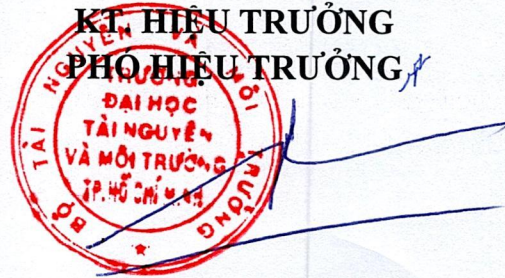 KT. HIỆU TRƯỞNG
PHÓ HIỆU TRƯỞNG
BỘ TÀI NGUYÊN VÀ MÔI TRƯỜNG
TRƯỜNG
ĐẠI HỌC
TÀI NGUYÊN
VÀ MÔI TRƯỜNG
TP. HỒ CHÍ MINH